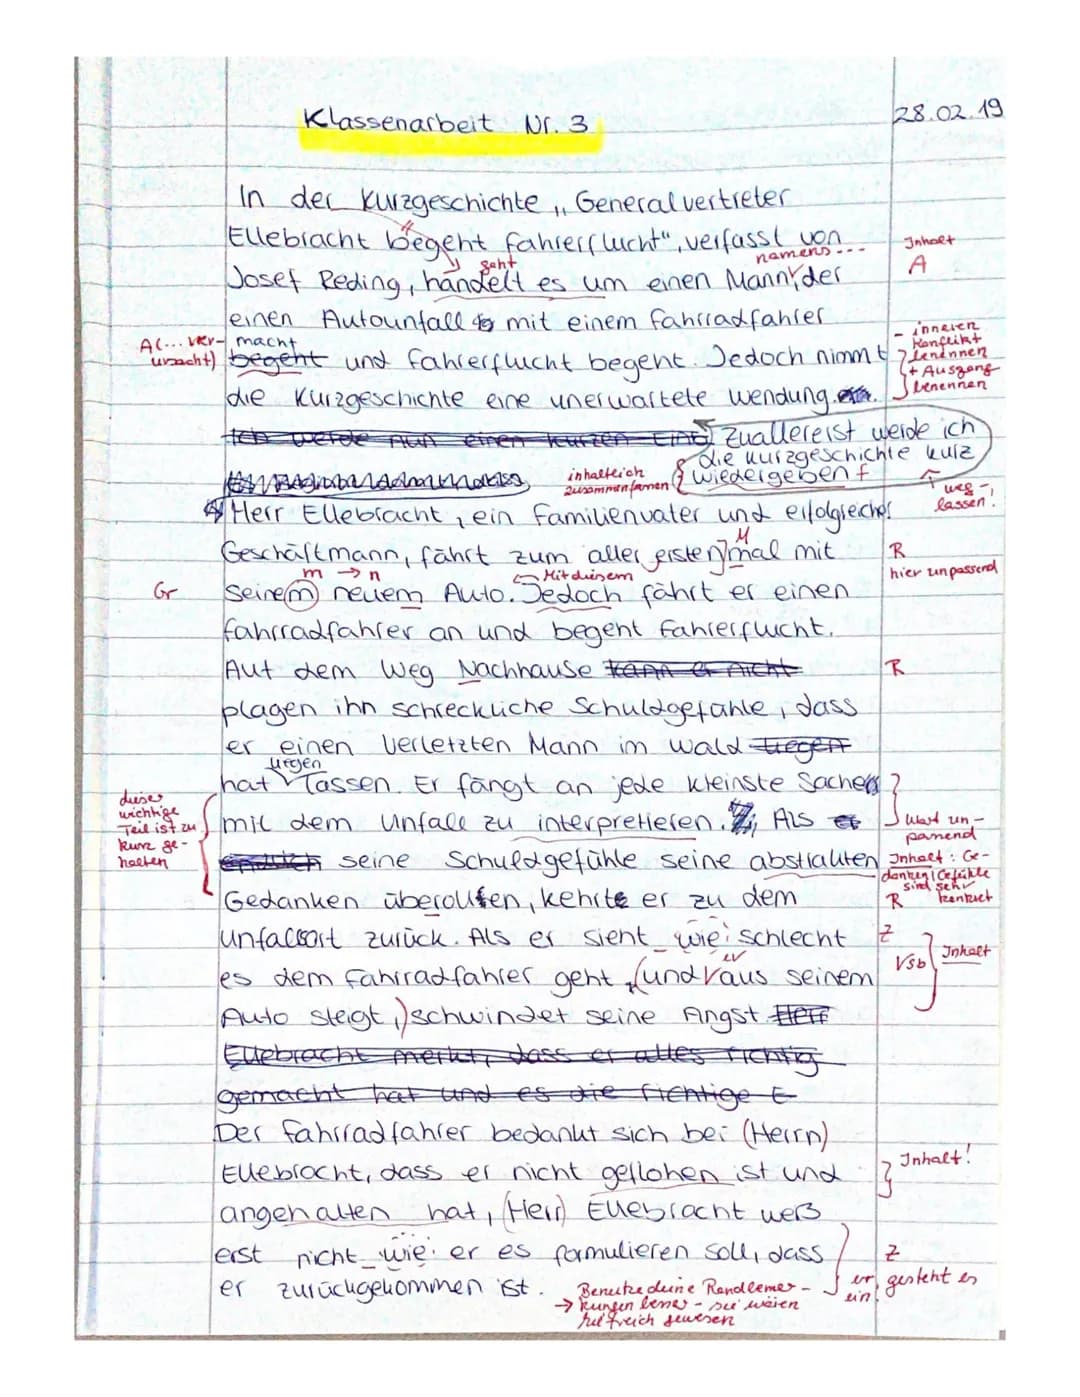 Klassenarbeit Nr. 3
28.02.19
In der Kurzgeschichte „Generalvertreter
Ellebracht begeht Fahrerflucht", verfasst von
Inhalt
geht
namens ...
Josef Reding, handelt es um einen Mann, der
A
einen Autounfall mit einem Fahrradfahrer
A(... ver-
ursacht)
macht
begeht und Fahrerflucht begent. Jedoch nimmt
- inneren
Konflikt
benennen
+ Ausgang
benennen
die Kurzgeschichte eine unerwartete Wendung.
Ich werde nun einen kurzen
Zuallererst werde ich
die Kurzgeschichte kurz
wiedergeben
inhaltlich
zusammenfassen
weg-
lassen!
Herr Ellebracht, ein Familienvater und erfolgreicher
Geschäftmann, fährt zum aller ersten mal mit
M
R
m → n
Mit diesem
hier unpassend
Gr
Seinem neuem Auto. Jedoch fährt er einen
Fahrradfahrer an und begent Fahrerflucht.
Auf dem Weg Nachhause kann er nicht
R
plagen ihn schreckliche Schuldgefühle, dass
er einen Verletzten Mann im Wald liegen
liegen
hat lassen. Er fängt an jede kleinste Sache
dieser
wichtige
Teil ist zu
kurz ge-
halten
mit dem Unfall zu interpretieren. Als er
Wort un-
passend
endlich seine Schuldgefühle seine abstrakten
Inhalt: Ge-
danken/Gefühle
sind sehr
konkret
Gedanken überollten, kehrte er zu dem
R
Unfallsort zurück. Als er sieht wie schlecht
Z
er
es dem Fahrradfahrer geht, (und aus seinem
Vsb
Inhalt
Auto steigt,) schwindet seine Angst. Herr
Ellebracht merkt, dass er alles richtig
gemacht hat und es die richtige E
Der Fahrradfahrer bedankt sich bei (Herrn)
Ellebracht, dass er nicht geflohen ist und
Inhalt!
angehalten hat, (Herr) Ellebracht weß
erst nicht wie er es formulieren soll, dass
Z
er zurückgekommen ist.
er gesteht es
ein!
Benutze deine Randbemer-
→ kungen besser - sie wären
hilfreich gewesen